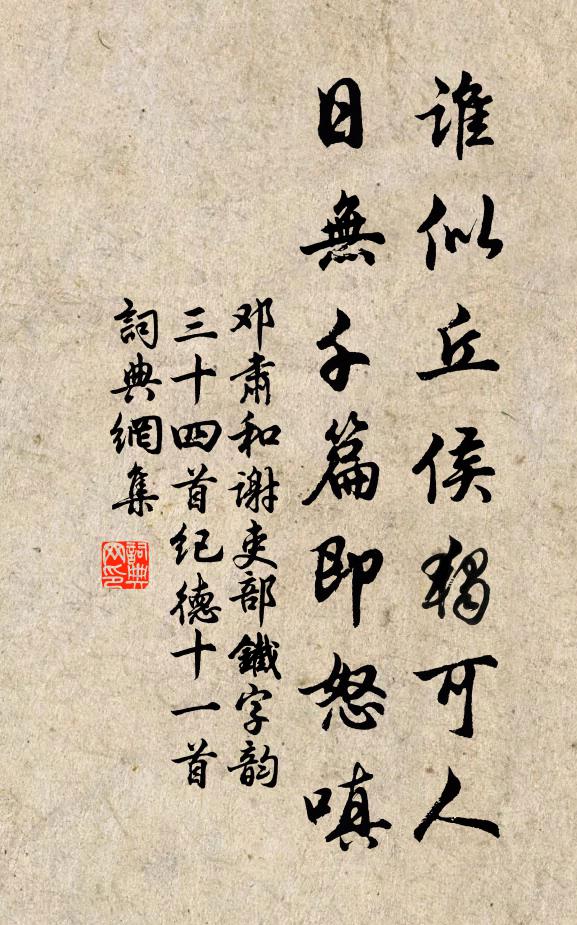 誰似丘侯獨可人
日無千篇即怒嗔
邓肅和謝吏部鐵字韵
三十四首紀德十一首
詞典網集
詞典网印